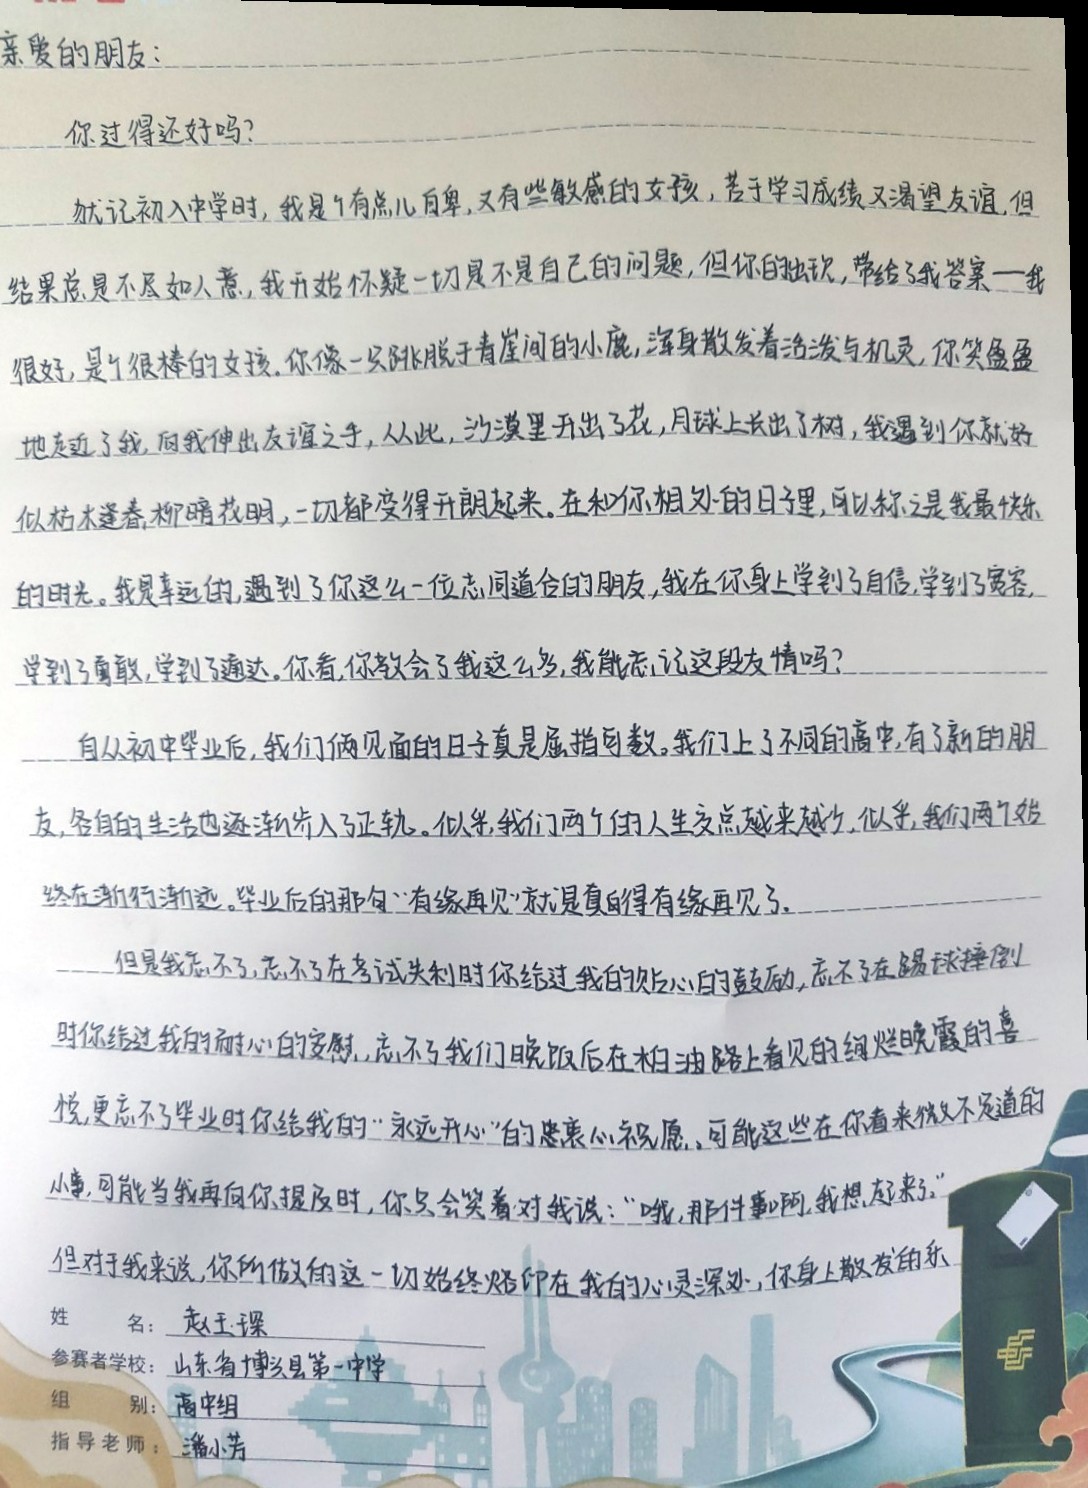 亲爱的朋友：
你过得还好吗？
犹记初入中学时，我是个有点儿自卑，又有些敏感的女孩，苦于学习成绩又渴望友谊，但
结果总是不尽如人意，我开始怀疑一切是不是自己的问题，但你的出现，带给了我答案——我
很好，是个很棒的女孩。你像一只跳脱于青崖间的小鹿，浑身散发着活泼与机灵，你笑盈盈
地走近了我，向我伸出友谊之手，从此，沙漠里开出了花，月球上长出了树，我遇到你就好
似枯木逢春，柳暗花明，一切都变得开朗起来。在和你相处的日子里，可以称之是我最快乐
的时光。我是幸运的，遇到了你这么一位志同道合的朋友，我在你身上学到了自信，学到了宽容，
学到了勇敢，学到了通达。你看，你教会了我这么多，我能忘记这段友情吗？
自从初中毕业后，我们俩见面的日子真是屈指可数。我们上了不同的高中，有了新的朋
友，各自的生活也逐渐步入了正轨。似乎，我们两个的人生交点越来越少，似乎，我们两个始
终在渐行渐远。毕业后的那句“有缘再见”就是真的得有缘再见了。
但是我忘不了，忘不了在考试失利时你给过我的贴心的鼓励，忘不了在踢球摔倒
时你给过我的耐心的安慰，忘不了我们晚饭后在柏油路上看见的绚烂晚霞的喜
悦，更忘不了毕业时你给我的“永远开心”的衷心祝愿，可能这些在你看来微不足道的
小事，可能当我再向你提及时，你只会笑着对我说：“哦，那件事啊，我想起来了。”
但对于我来说，你所做的这一切始终烙印在我的心灵深处，你身上散发的乐
姓 名：赵玉琛
参赛者学校：山东省博兴县第一中学
组 别：高中组
指导老师：潘小芳